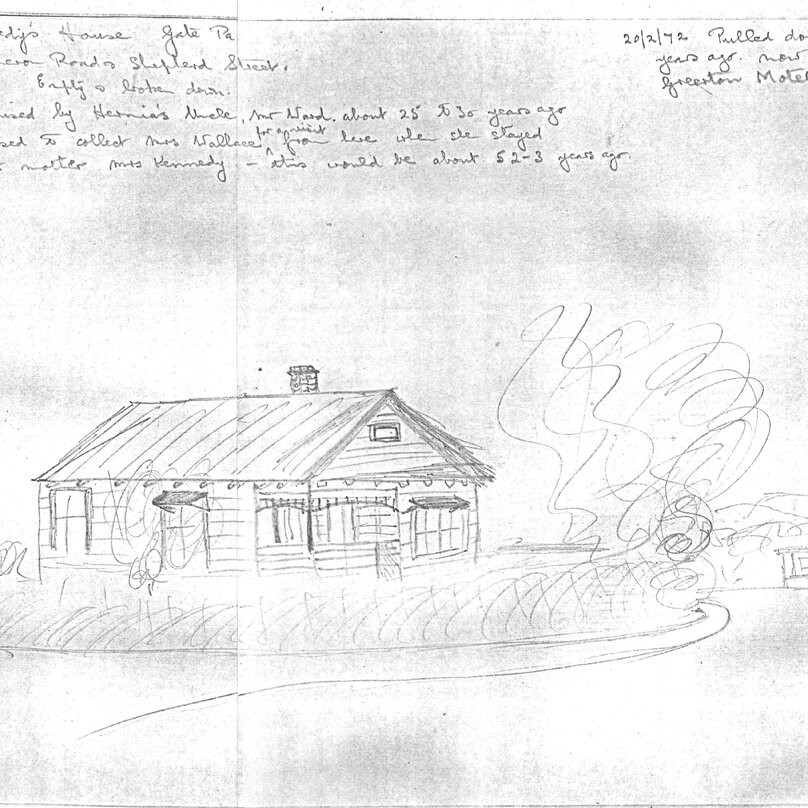 edy's House Gate Pa
eron Road & Shepherd Street.
Empty & broken down.
used by Hermia's Uncle, Mr Ward. about 25 to 30 years ago
sed to collect Mrs Wallace from here when she stayed
for a visit
matter Mrs Kennedy – this would be about 52-3 years ago.
20/2/72 Pulled do
years ago. now
Greerton Motel